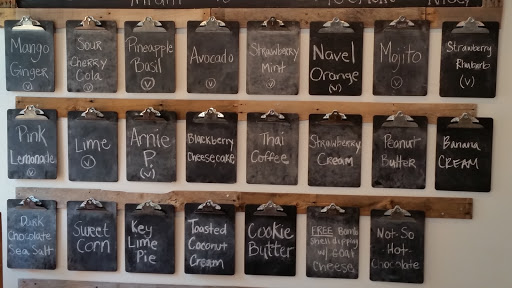 Mango
Ginger
(V)
Sour
Cherry
Cola
(V)
Pineapple
Basil
(V)
Avocado
(V)
Strawberry
Mint
(V)
Navel
Orange
(V)
Mojito
(V)
Strawberry
Rhubarb
(V)
Pink
Lemonade
(V)
Lime
(V)
Arnie
P.
(V)
Blackberry
Cheesecake
Thai
Coffee
Strawberry
Cream
Peanut
Butter
Banana
CREAM
Dark
Chocolate
Sea Salt
Sweet
Corn
Key
Lime
Pie
Toasted
Coconut
Cream
Cookie
Butter
FREE Bomb
shell dipping
w/ GOAT
Cheese
Not-So
-Hot-
Chocolate